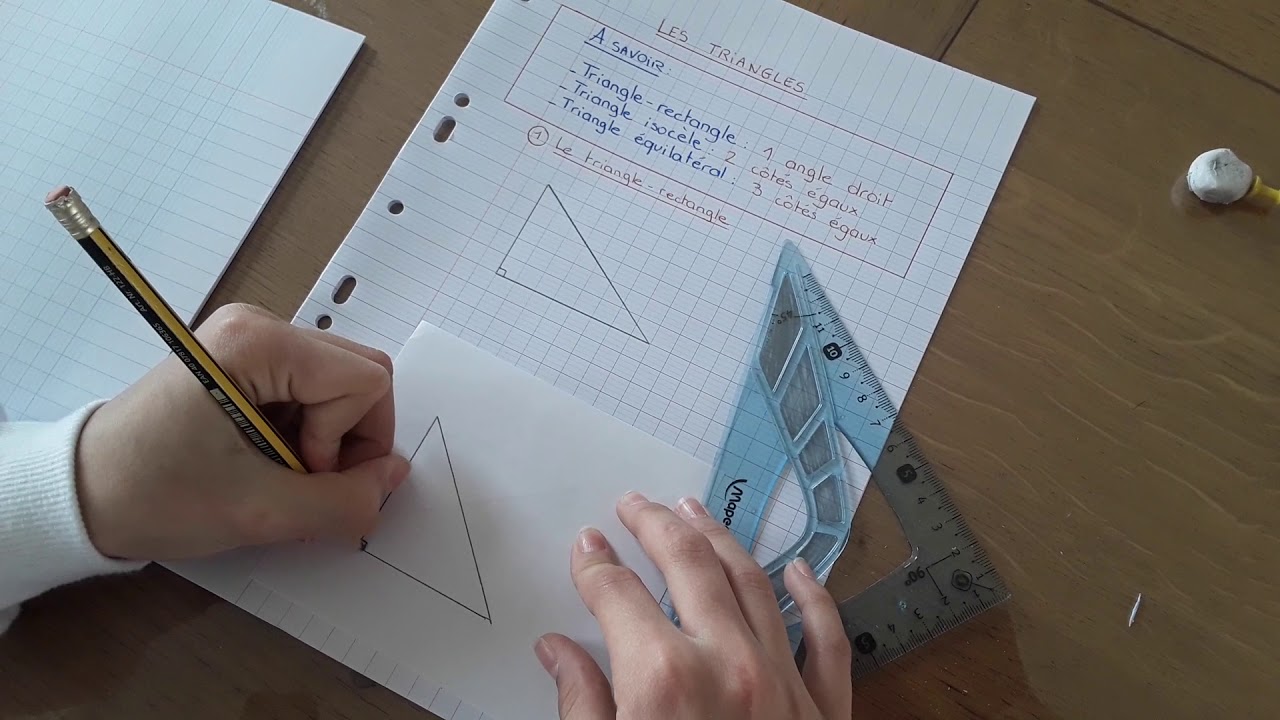 LES TRIANGLES
A SAVOIR:
- Triangle-rectangle : 1 angle droit
- Triangle isocèle : 2 côtés égaux
- Triangle équilatéral : 3 côtés égaux
1 Le triangle-rectangle
11
10
9
8
7
6
5
4
3
2
1
90°
1
2
3
4
5
Mape